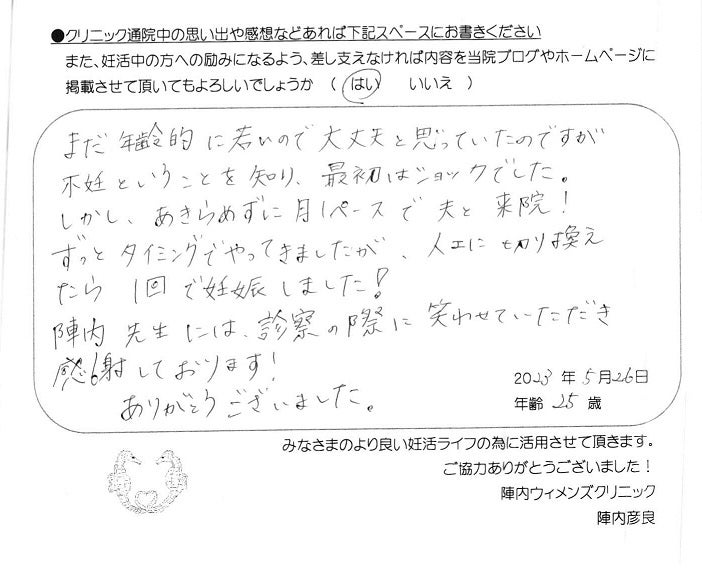 ●クリニック通院中の思い出や感想などあれば下記スペースにお書きください
また、妊活中の方への励みになるよう、差し支えなければ内容を当院ブログやホームページに
掲載させて頂いてもよろしいでしょうか （ はい いいえ ）
まだ年齢的に若いので大丈夫と思っていたのですが
不妊ということを知り、最初はショックでした。
しかし、あきらめずに月1ペースで夫と来院！
ずっとタイミングでやってきましたが、人工に切り換え
たら 1回で妊娠しました！
陣内先生には、診察の際に笑わせていただき
感謝しております！
ありがとうございました。
2023 年 5月26日
年齢 25 歳
みなさまのより良い妊活ライフの為に活用させて頂きます。
ご協力ありがとうございました！
陣内ウィメンズクリニック
陣内彦良